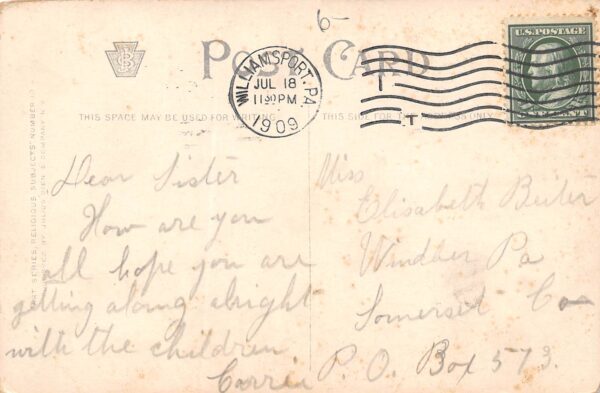 6-
POST CARD
U.S. POSTAGE
WILLIAMSPORT, PA.
JUL 18
11 30 PM
1909
T
THIS SPACE MAY BE USED FOR WRITING
THIS SPACE FOR THE ADDRESS ONLY
ART SERIES, RELIGIOUS SUBJECTS NUMBER
Dear Sister
How are you
all hope you are
getting along alright
with the children
Carrie
Miss
Elisabeth Beiter
Windber Pa
Somerset Co
P. O. Box 573.